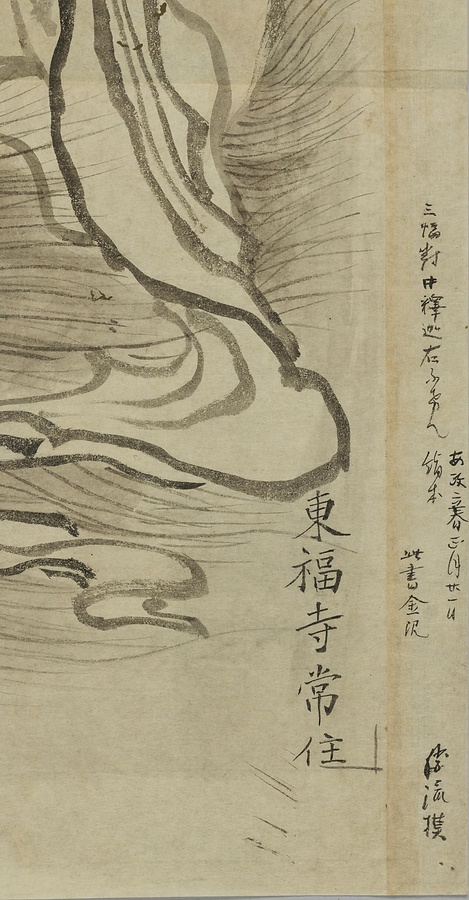 三幅對中釋迦右
絹本
安政二春正月廿一日
此書金
流摸
東福寺常住